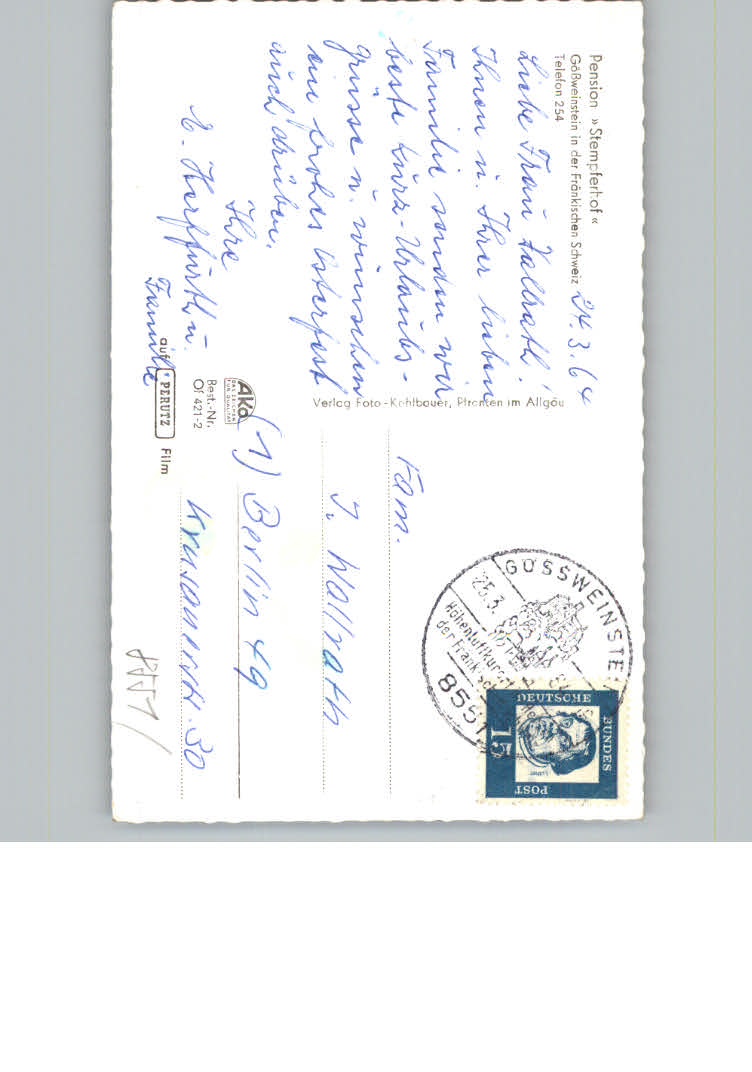 Pension »Stempferhof«
Gößweinstein in der Fränkischen Schweiz
Telefon 254
24.3.64
Liebe Frau Wallrath!
Ihnen u. Ihrer lieben
Familie senden wir
beste Kurz-Urlaubs-
grüsse u. wünschen
ein frohes Osterfest
auch drüben.
Ihre
E. Herffurth u.
Familie
Verlag Foto-Kohlbauer, Pfronten im Allgäu
Ako
DAS ZEICHEN
FÜR QUALITÄT
Best.-Nr.
Of 421-2
auf PERUTZ Film
Fam.
J. Wallrath
(1) Berlin 49
30
8551
GÖSSWEINSTE
25.3.
Höhenluftkurort
der Fränk.
8551
DEUTSCHE
BUNDES
POST
15
Luther